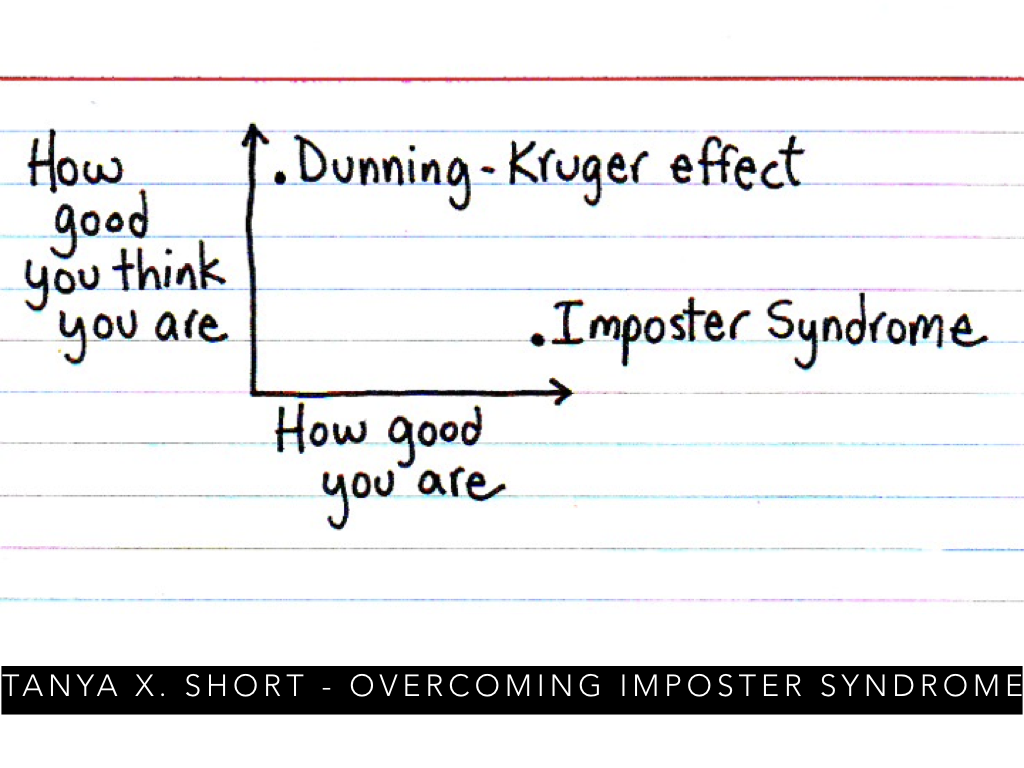 How
good
you think
you are
.Dunning-Kruger effect
.Imposter Syndrome
How good
you are
TANYA X. SHORT - OVERCOMING IMPOSTER SYNDROME